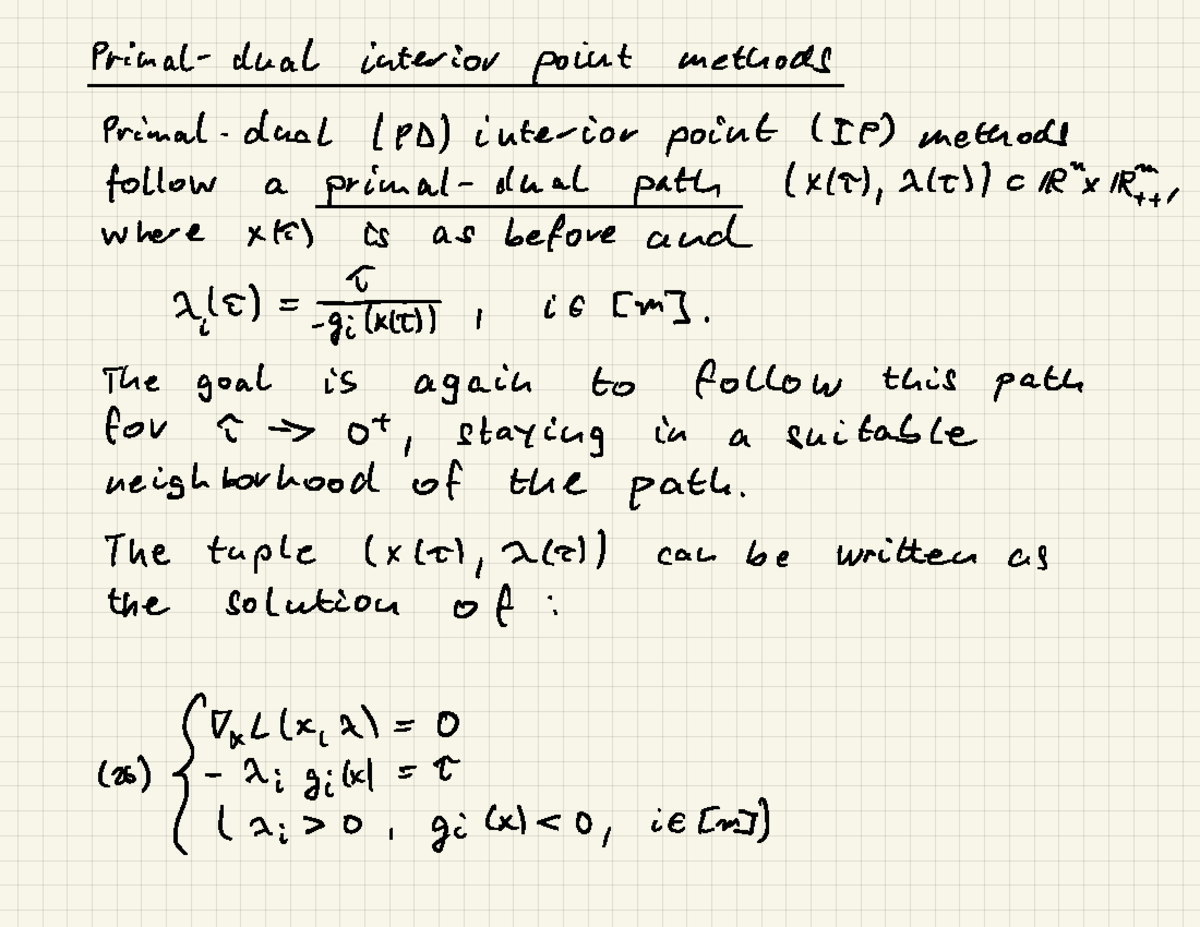 Primal-dual interior point methods
Primal-dual (PD) interior point (IP) methods
follow a primal-dual path (x(τ), λ(τ)) ⊂ ℝⁿ × ℝᵐ₊₊,
where x(τ) is as before and
λᵢ(τ) = τ / -gᵢ(x(τ)) , i ∈ [m].
The goal is again to follow this path
for τ → 0⁺, staying in a suitable
neighborhood of the path.
The tuple (x(τ), λ(τ)) can be written as
the solution of :
∇ₓL(x, λ) = 0
- λᵢ gᵢ(x) = τ
(λᵢ > 0 , gᵢ(x) < 0, i ∈ [m])